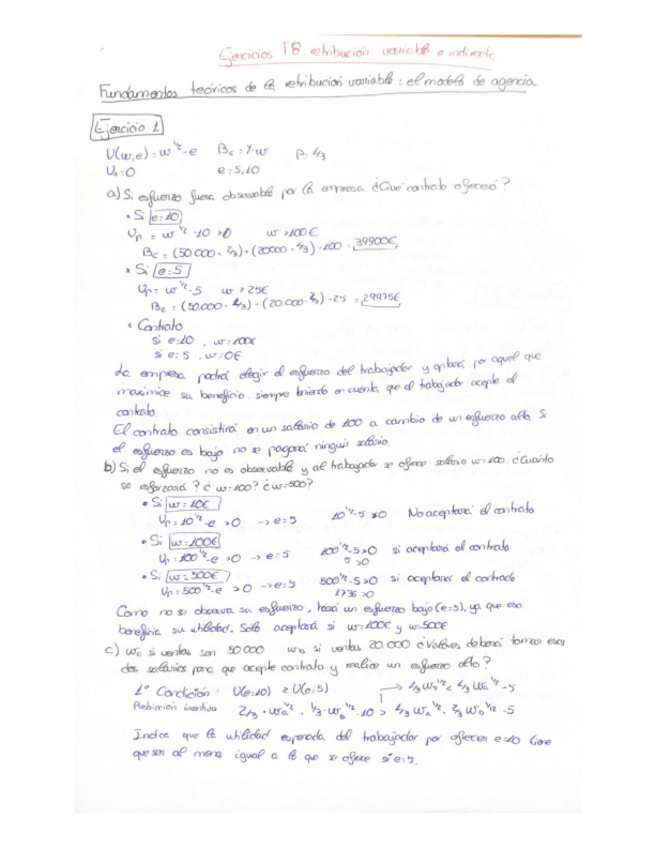 Ejercicios T8. retribución variable e indirecta
Fundamentos teóricos de la retribución variable: el modelo de agencia
Ejercicio 1
U(w,e) = w^1/2 - e   Bc = Y-w   p. 1/3
U₀ = 0   e = 5,10
a) Si esfuerzo fuera observable por la empresa ¿Qué contrato ofrecerá?
• Si e=10
Up = w^1/2 -10 >0   w >100€
Bc = (50 000 · 2/3) + (20000 · 1/3) - 100 = 39900€
• Si e=5
Up = w^1/2 - 5   w > 25€
Bc = (50.000 · 1/3) - (20.000 · 2/3) - 25 = 29975€
• Contrato
si e=10 , w=100€
si e=5 , w=0€
La empresa podrá elegir el esfuerzo del trabajador y optará por aquel que
maximice su beneficio siempre teniendo en cuenta que el trabajador acepte el
contrato.
El contrato consistirá en un salario de 100 a cambio de un esfuerzo alto. Si
el esfuerzo es bajo no se pagará ningún salario.
b) Si el esfuerzo no es observable y al trabajador se ofrece salario w=100 ¿Cuánto
se esforzará? ¿w=100? ¿w=500?
• Si w=10€
Up = 10^1/2 - e >0 → e=5   10^1/2 -5 ≯0   No aceptará el contrato
• Si w=100€
Up = 100^1/2 - e >0 → e=5   100^1/2 -5>0   si aceptará el contrato
5 >0
• Si w=500€
Up = 500^1/2 - e > 0 → e=5   500^1/2 -5>0   si aceptará el contrato
17'36 >0
Como no se observa su esfuerzo, hará un esfuerzo bajo (e=5), ya que eso
beneficia su utilidad. Solo aceptará si w=100€ y w=500€
c) wa si ventas son 50000   wb si ventas 20.000 ¿Valores deberá tomar esos
dos salarios para que acepte contrato y realice un esfuerzo alto?
1º Condición: U(e=10) ≥ U(e=5)   → 1/3 wb^1/2 < 1/3 wa^1/2 -5
Restricción incentivo   2/3 · wa^1/2 · 1/3 · wb^1/2 · 10 > 1/3 wa^1/2 · 2/3 wb^1/2 -5
Indica que la utilidad esperada del trabajador por ofrecer e=10 tiene
que ser al menos igual a lo que se ofrece si e=5.